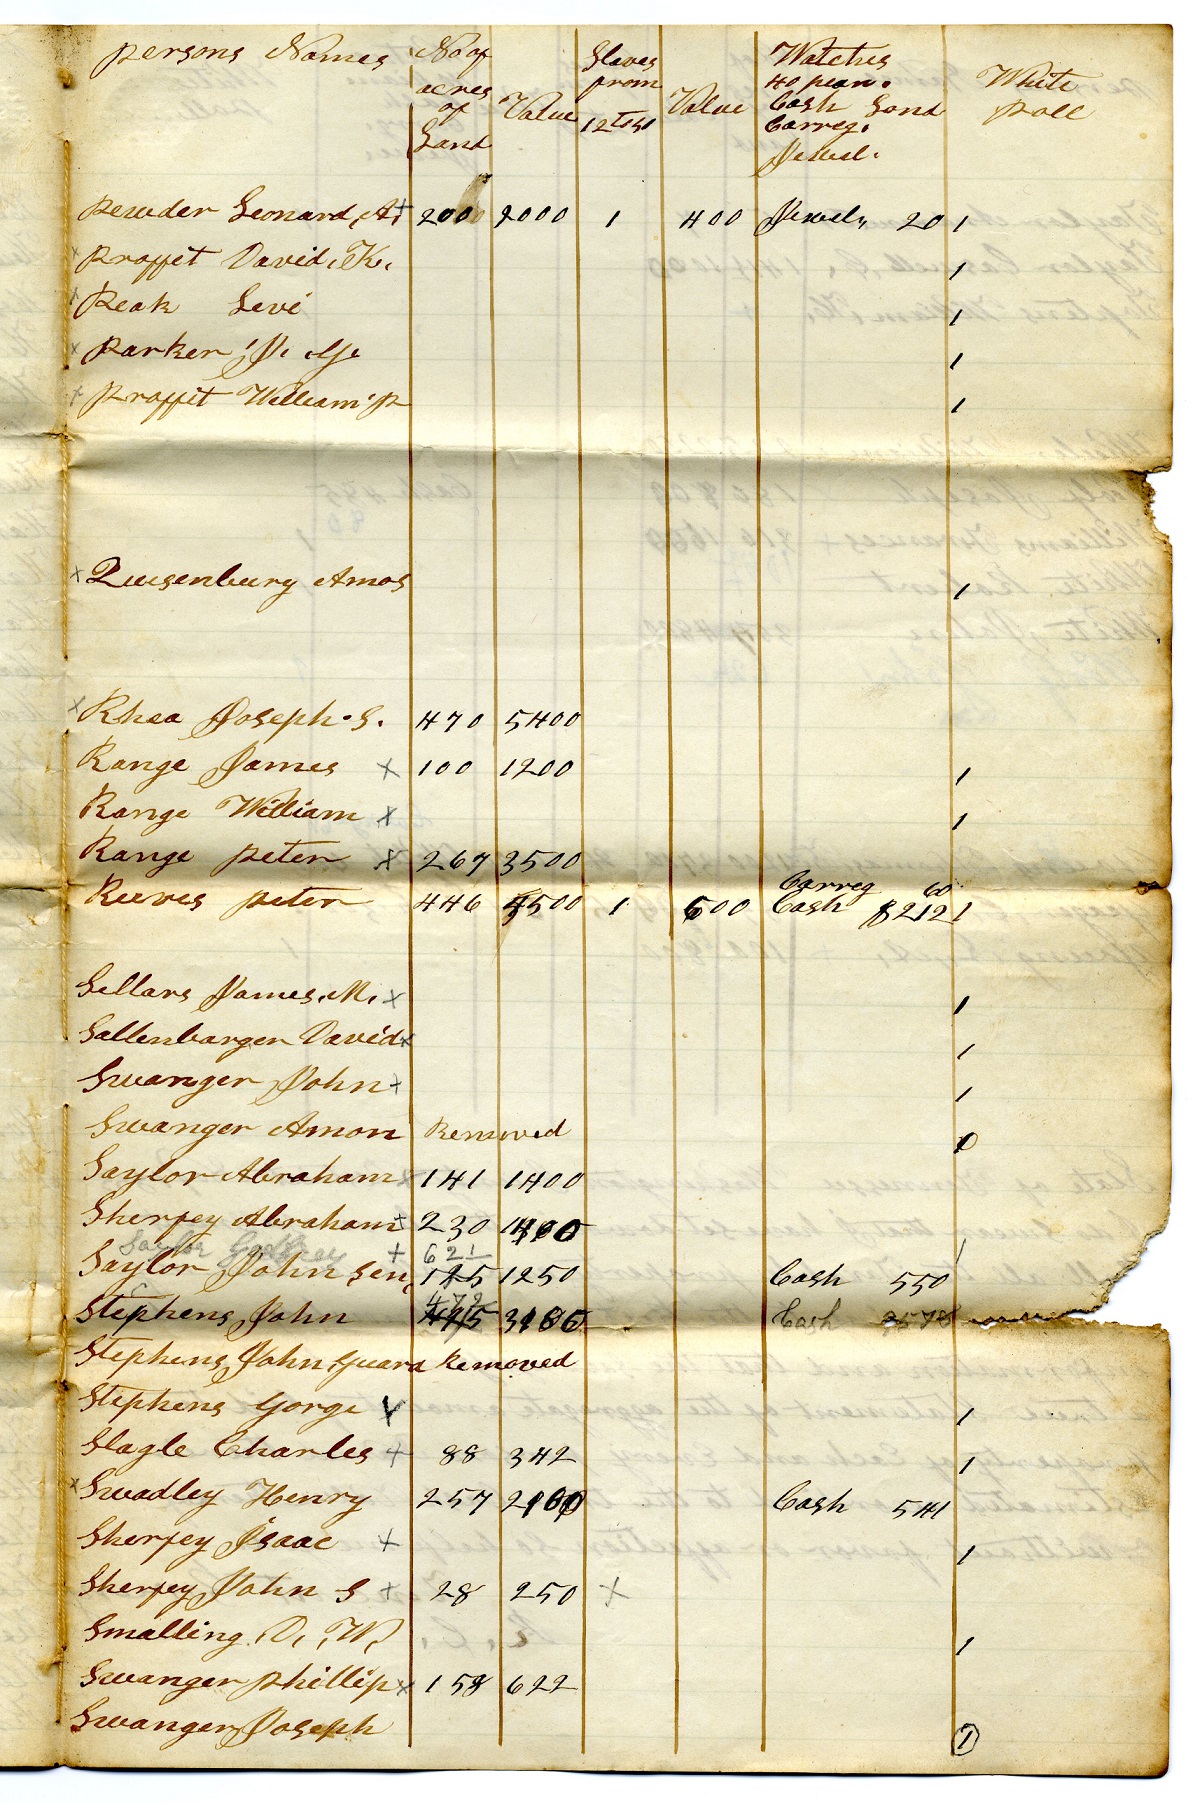 persons Names No of acres of Land Value Slaves from 12 to 50 Value Watches pean. Cash Land Carreg. Jewel. White poll
Pewder Leonard, A. + 200 2000 1 400 Jewel, 20 1
x Proffit David. K. 1
x Peak Levi 1
x Parker, J. G. 1
x Proffit William P 1
x Quesenbury Amos 1
x Rhea Joseph. S. 470 5400
Range James x 100 1200 1
Range William x 1
Range Peter x 267 3500
Carreg 60
Reeves Peter 446 4500 1 600 Cash $212 1
Sellars James. M. x 1
Sallenbarger David x 1
Swanger John + 1
Swanger Amon Removed
Saylor Abraham x 141 1400
Sherfey Abraham + 230
Saylor Godfrey + 621
Saylor John Sen, 125 1250 Cash 550
472
Stephens John Cash
Stephens John Guard Removed
Stephens Gorge x 1
Slagle Charles + 88 342 1
x Swadley Henry 257 2100 Cash 541
Sherfey Isaac + 1
Sherfey John S + 28 250 x
Smalling D. W. 1
Swanger Phillip x 158 622
Swanger Joseph 1